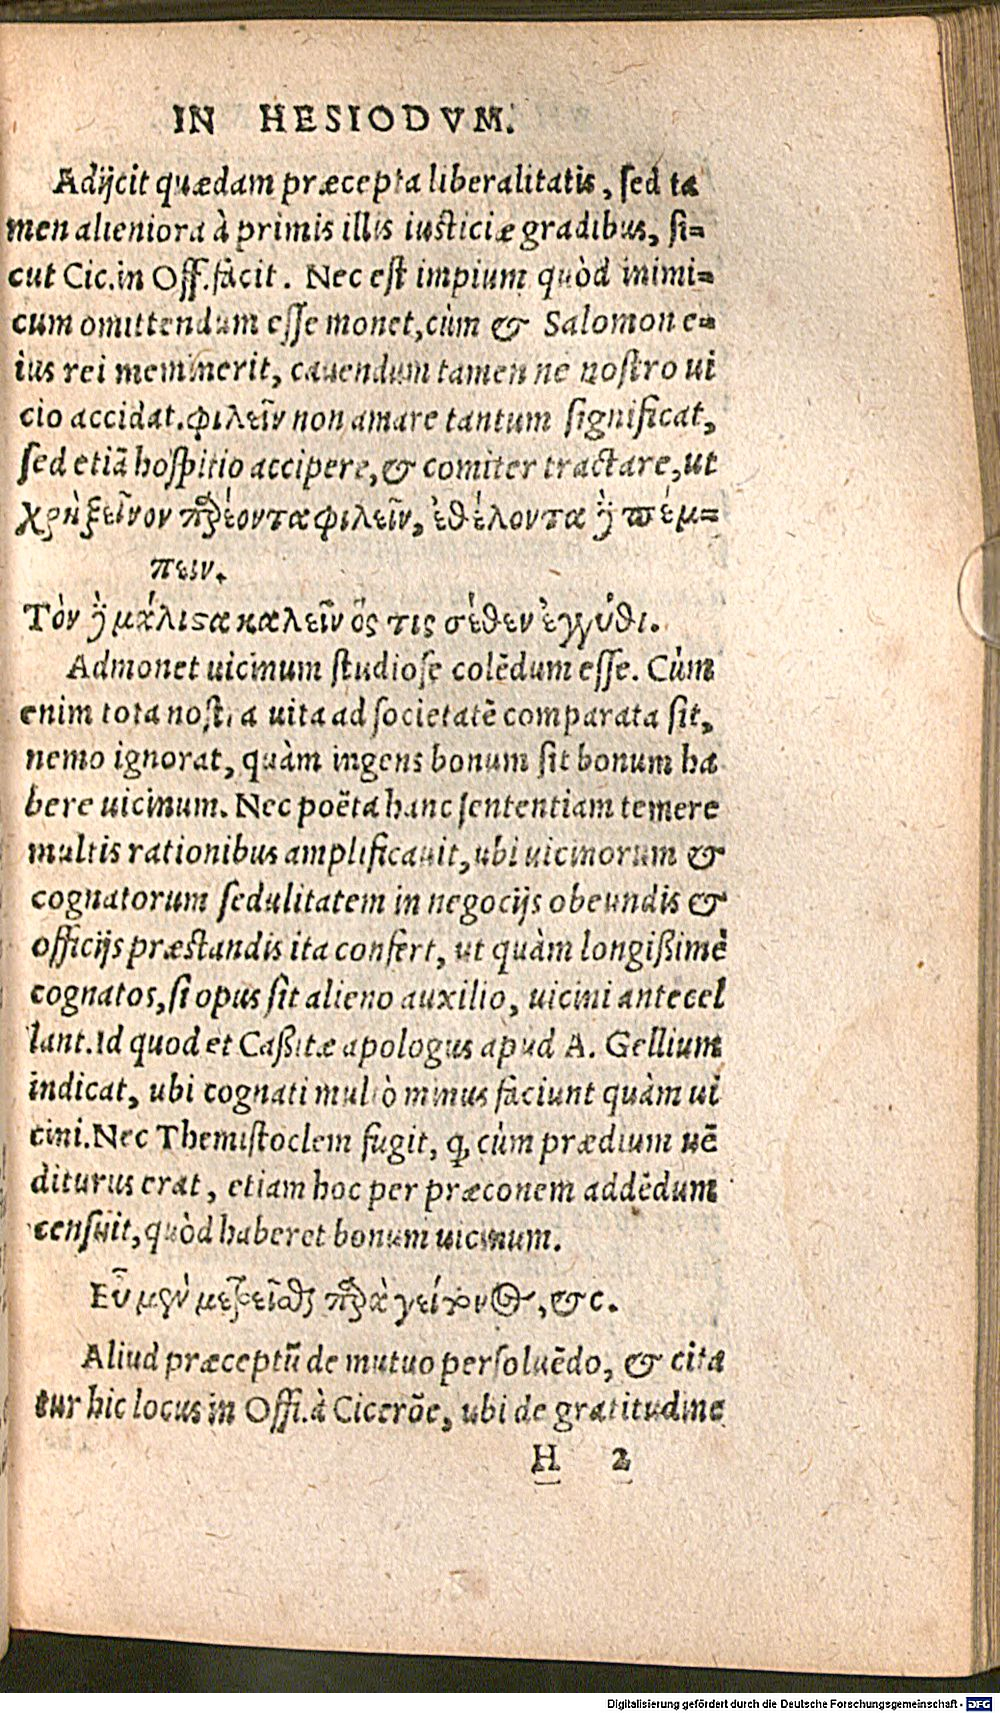 IN HESIODVM.
Adijcit quædam præcepta liberalitatis, sed ta
men alieniora à primis illis iusticiæ gradibus, si=
cut Cic.in Off.facit. Nec est impium quòd inimi=
cum omittendum esse monet,cùm & Salomon e=
ius rei meminerit, cauendum tamen ne nostro ui
cio accidat.φιλεῖν non amare tantum significat,
sed etiā hospitio accipere,& comiter tractare,ut
χρὴ ξεῖνον παρέοντα φιλεῖν, ἐθέλοντα ϗ̀ πέμ=
πειν.
Τὸν ϗ̀ μάλιϛα καλεῖν ὅς τις σέθεν ἐγγύθι.
Admonet uicinum studiose colēdum esse. Cùm
enim tota nostra uita ad societatē comparata sit,
nemo ignorat, quàm ingens bonum sit bonum ha
bere uicinum. Nec poëta hanc sententiam temere
multis rationibus amplificauit, ubi uicinorum &
cognatorum sedulitatem in negocijs obeundis &
officijs præstandis ita confert, ut quàm longißimè
cognatos,si opus sit alieno auxilio, uicini antecel
lant.Id quod et Caßitæ apologus apud A. Gellium
indicat, ubi cognati multò minus faciunt quàm ui
cini.Nec Themistoclem fugit, ꝙ cùm prædium uē
diturus erat, etiam hoc per præconem addēdum
censuit,quòd haberet bonum uicinum.
Εὖ μὲν μετρεῖσθαι παρὰ γείτονος,&c.
Aliud præceptū de mutuo persoluēdo, & cita
tur hic locus in Offi.à Cicerōe, ubi de gratitudine
H 2
Digitalisierung gefördert durch die Deutsche Forschungsgemeinschaft - DFG